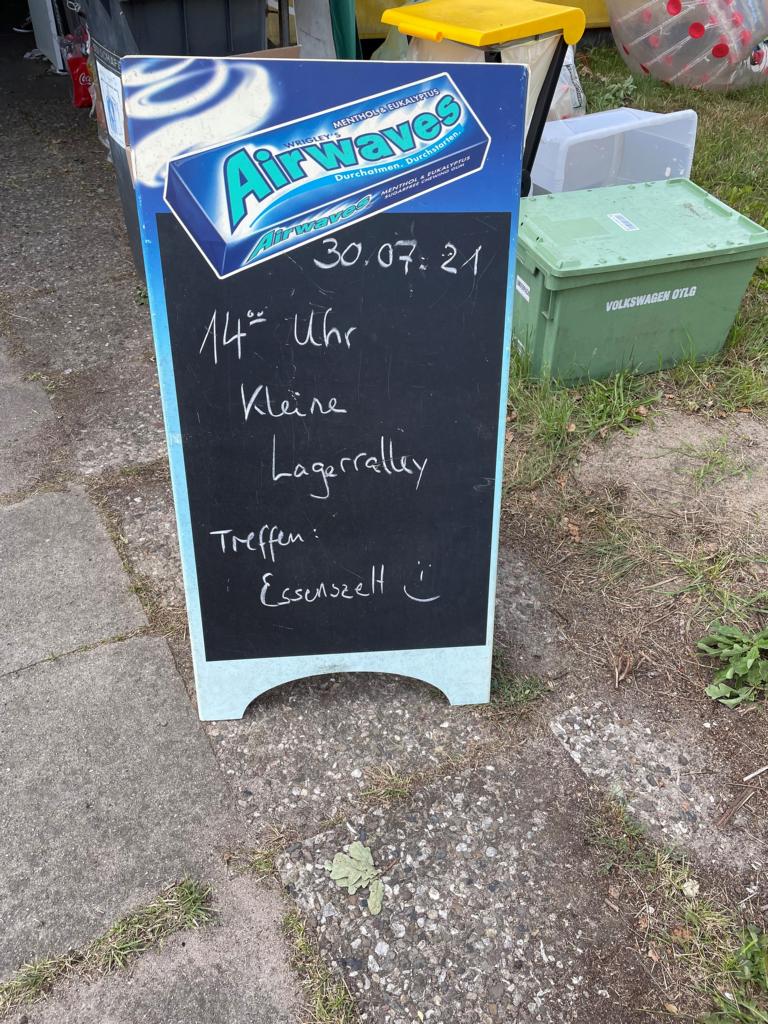 WRIGLEY'S
MENTHOL & EUKALYPTUS
Airwaves
Durchatmen. Durchstarten.
Airwaves
MENTHOL & EUKALYPTUS
SUGARFREE CHEWING GUM
30.07.21
14⁰⁰ Uhr
Kleine
Lagerralley
Treffen:
Essenszelt
VOLKSWAGEN OTLG